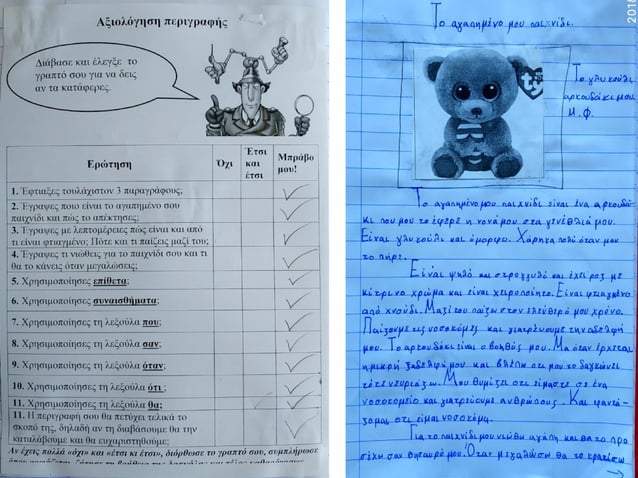 Αξιολόγηση περιγραφής
Διάβασε και έλεγξε το
γραπτό σου για να δεις
αν τα κατάφερες.
Ερώτηση
Όχι
Έτσι
και
έτσι
Μπράβο
μου!
1. Έφτιαξες τουλάχιστον 3 παραγράφους;
2. Έγραψες ποιο είναι το αγαπημένο σου
παιχνίδι και πώς το απέκτησες;
3. Έγραψες με λεπτομέρειες πώς είναι και από
τι είναι φτιαγμένο; Πότε και τι παίζεις μαζί του;
4. Έγραψες τι νιώθεις για το παιχνίδι σου και τι
θα το κάνεις όταν μεγαλώσεις;
5. Χρησιμοποίησες επίθετα;
6. Χρησιμοποίησες συναισθήματα;
7. Χρησιμοποίησες τη λεξούλα που;
8. Χρησιμοποίησες τη λεξούλα σαν;
9. Χρησιμοποίησες τη λεξούλα όταν;
10. Χρησιμοποίησες τη λεξούλα ότι;
11. Χρησιμοποίησες τη λεξούλα θα;
11. Η περιγραφή σου θα πετύχει τελικά το
σκοπό της, δηλαδή αν τη διαβάσουμε θα την
καταλάβουμε και θα ευχαριστηθούμε;
Αν έχεις πολλά «όχι» και «έτσι κι έτσι», διόρθωσε το γραπτό σου, συμπλήρωσε
Το αγαπημένο μου παιχνίδι.
ty
Το γλυκούλι
αρκουδάκι μου
Μ.Φ.
Το αγαπημένο μου παιχνίδι είναι ένα αρκουδά-
κι που μου το έφερε η νονά μου στα γενέθλιά μου.
Είναι γλυκούλι και όμορφο. Χάρηκα πολύ όταν μου
το πήρε.
Είναι ψηλό και στρογγυλό και έχει ροζ με
κίτρινο χρώμα και είναι χειροποίητο. Είναι φτιαγμένο
από χνούδι. Μαζί του παίζω στον ελεύθερό μου χρόνο.
Παίζουμε τις νοσοκόμες και γιατρεύουμε την αδελφή
μου. Το αρκουδάκι είναι ο βοηθός μου. Μα όταν έρχεται
η μικρή ξαδέλφη μου και βλέπω οτι μου το δαγκώνει
τότε νευριάζω. Μου θυμίζει οτι είμαστε σε ένα
νοσοκομείο και γιατρεύουμε ανθρώπους. Και φαντά-
ζομαι οτι είμαι νοσοκόμα.
Για το παιχνίδι μου νιώθω αγάπη και θα το προ
σέχω σαν θησαυρό μου. Όταν μεγαλώσω θα το κρατήσω